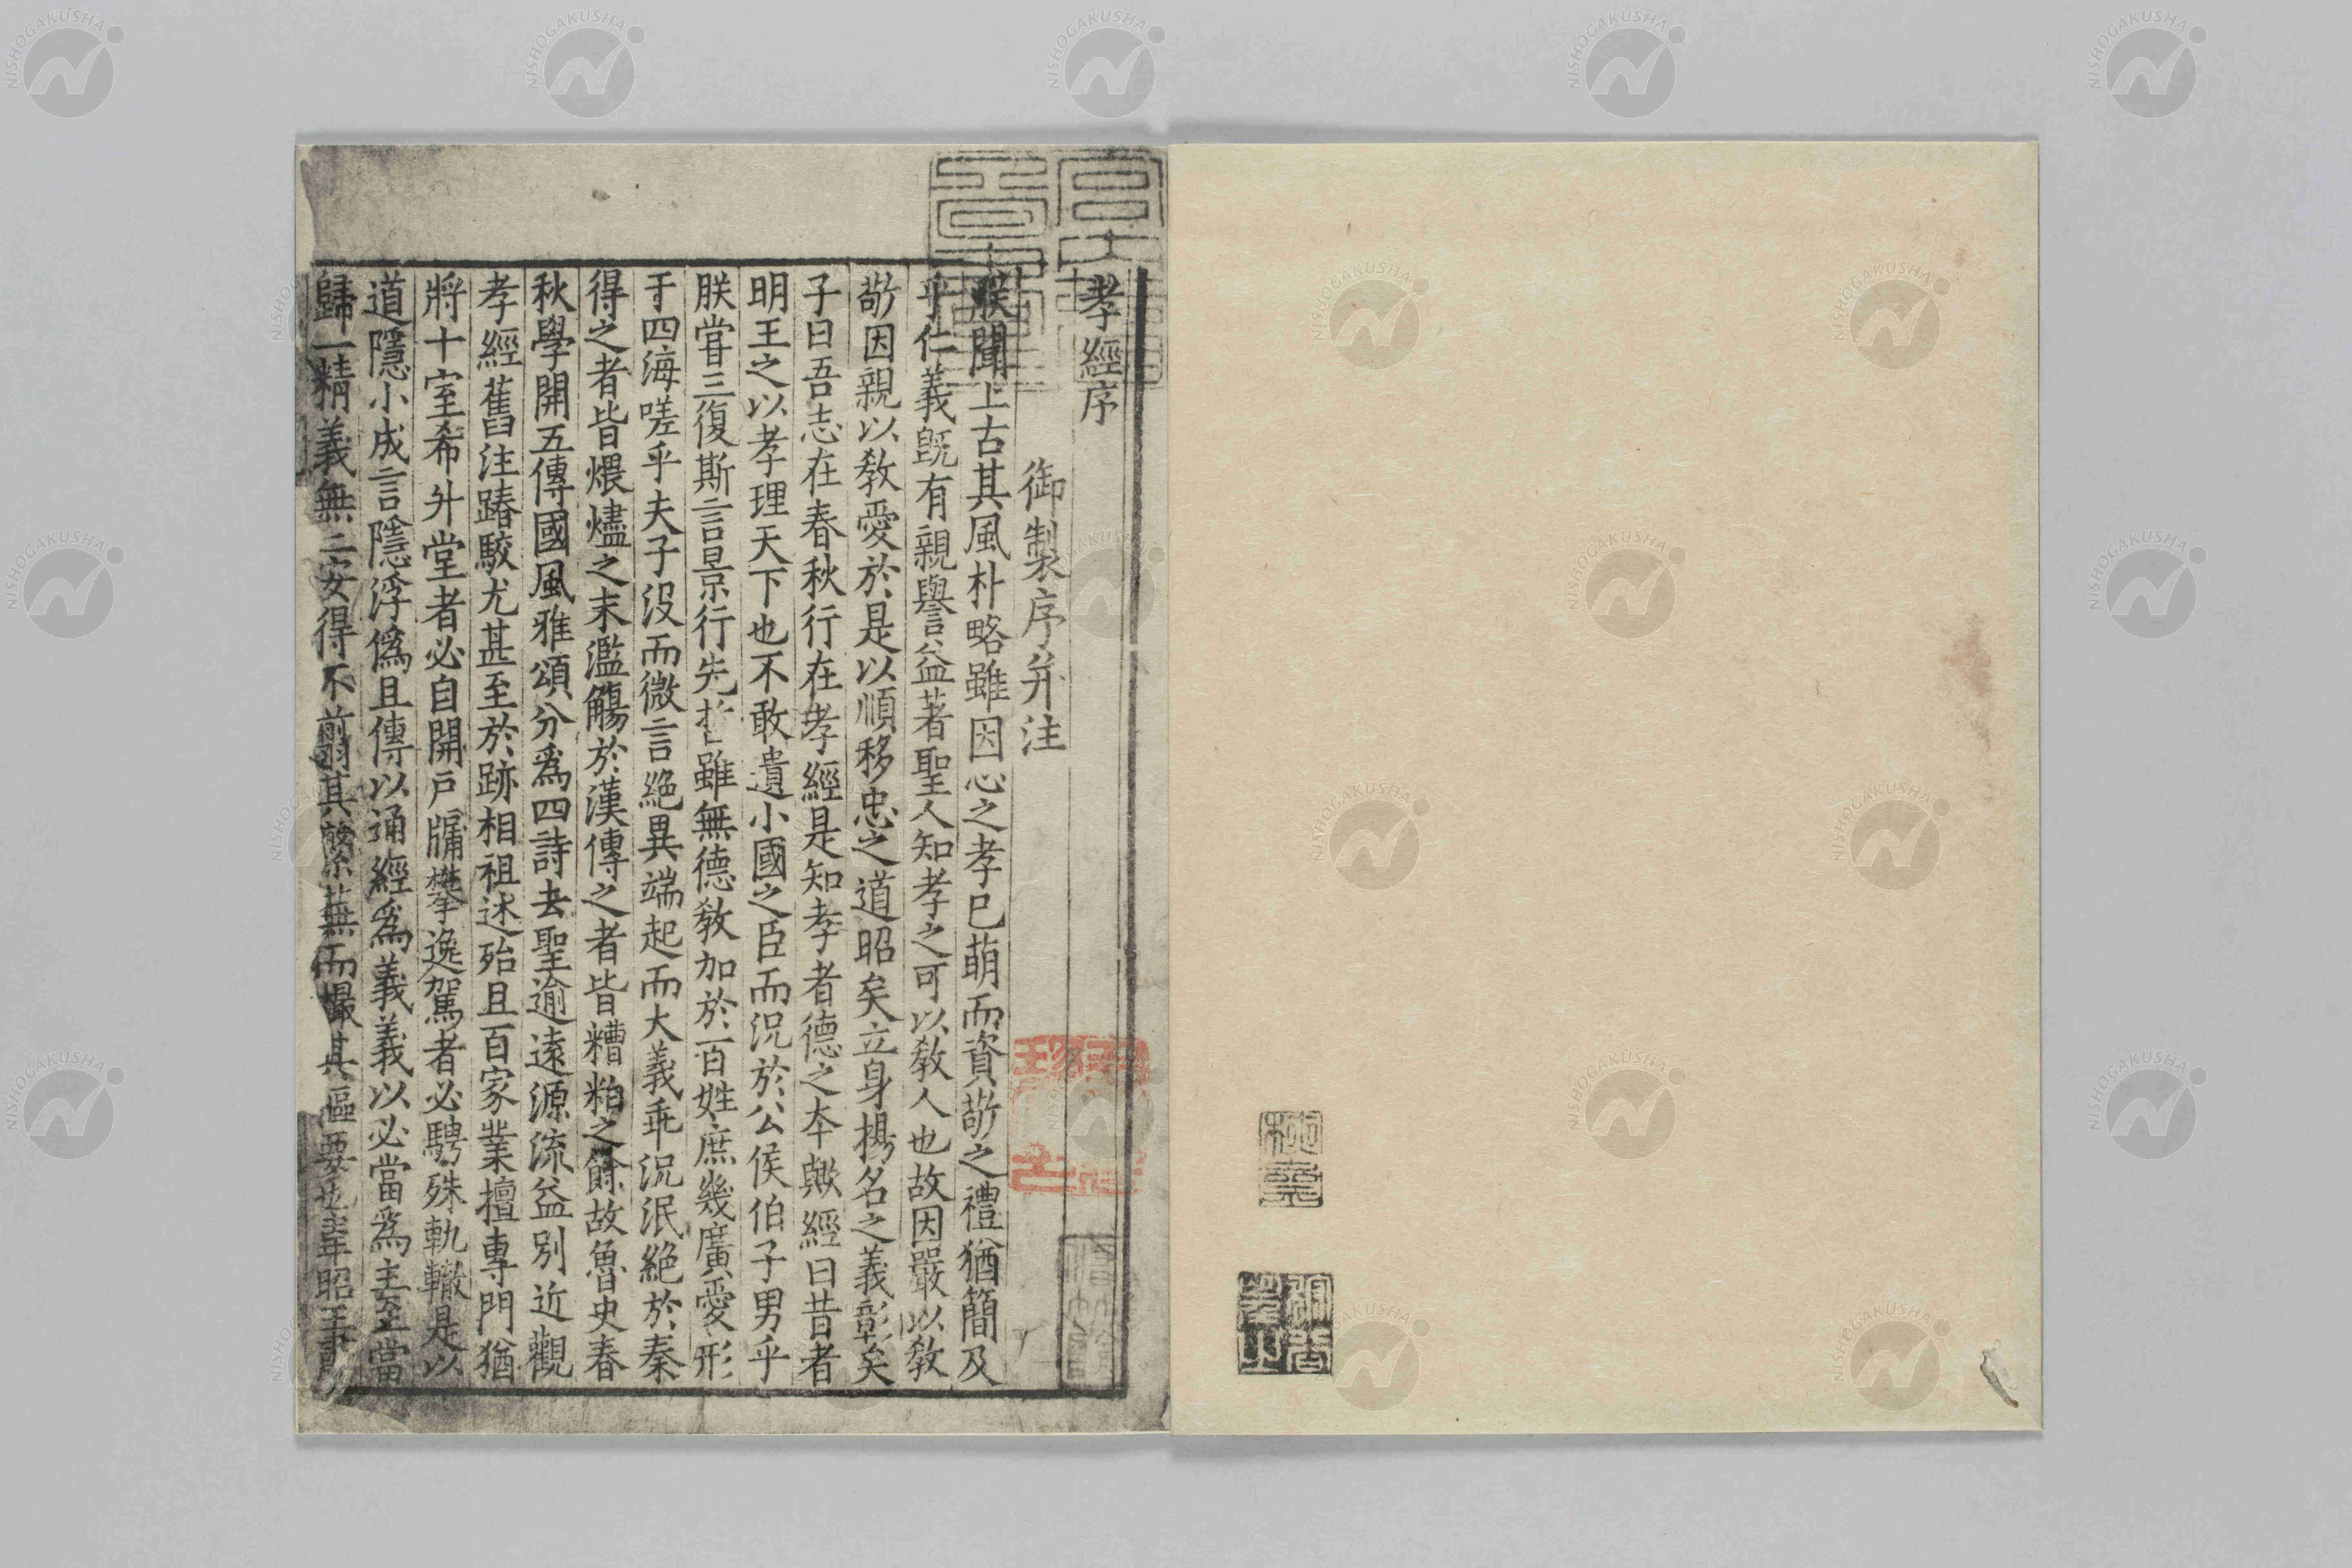 孝經序
御製序并注
朕聞上古其風朴略雖因心之孝已萌而資敬之禮猶簡及
乎仁義旣有親譽益著聖人知孝之可以敎人也故因嚴以敎
敬因親以敎愛於是以順移忠之道昭矣立身揚名之義彰矣
子曰吾志在春秋行在孝經是知孝者德之夲歟經曰昔者
明王之以孝理天下也不敢遺小國之臣而況於公侯伯子男乎
朕甞三復斯言景行先哲雖無德敎加於百姓庶幾廣愛形
于四海嗟乎夫子沒而微言絶異端起而大義乖況泯絶於秦
得之者皆煨燼之末濫觴於漢傳之者皆糟粕之餘故魯史春
秋學開五傳國風雅頌分爲四詩去聖逾遠源流益別近觀
孝經舊注踳駮尤甚至於跡相祖述殆且百家業擅專門猶
將十室希升堂者必自開戸牖攀逸駕者必騁殊軌轍是以
道隱小成言隱浮僞且傳以通經爲義義以必當爲主至當
歸一精義無二安得不翦其繁蕪而撮其樞要也韋昭王肅
NISHOGAKUSHA